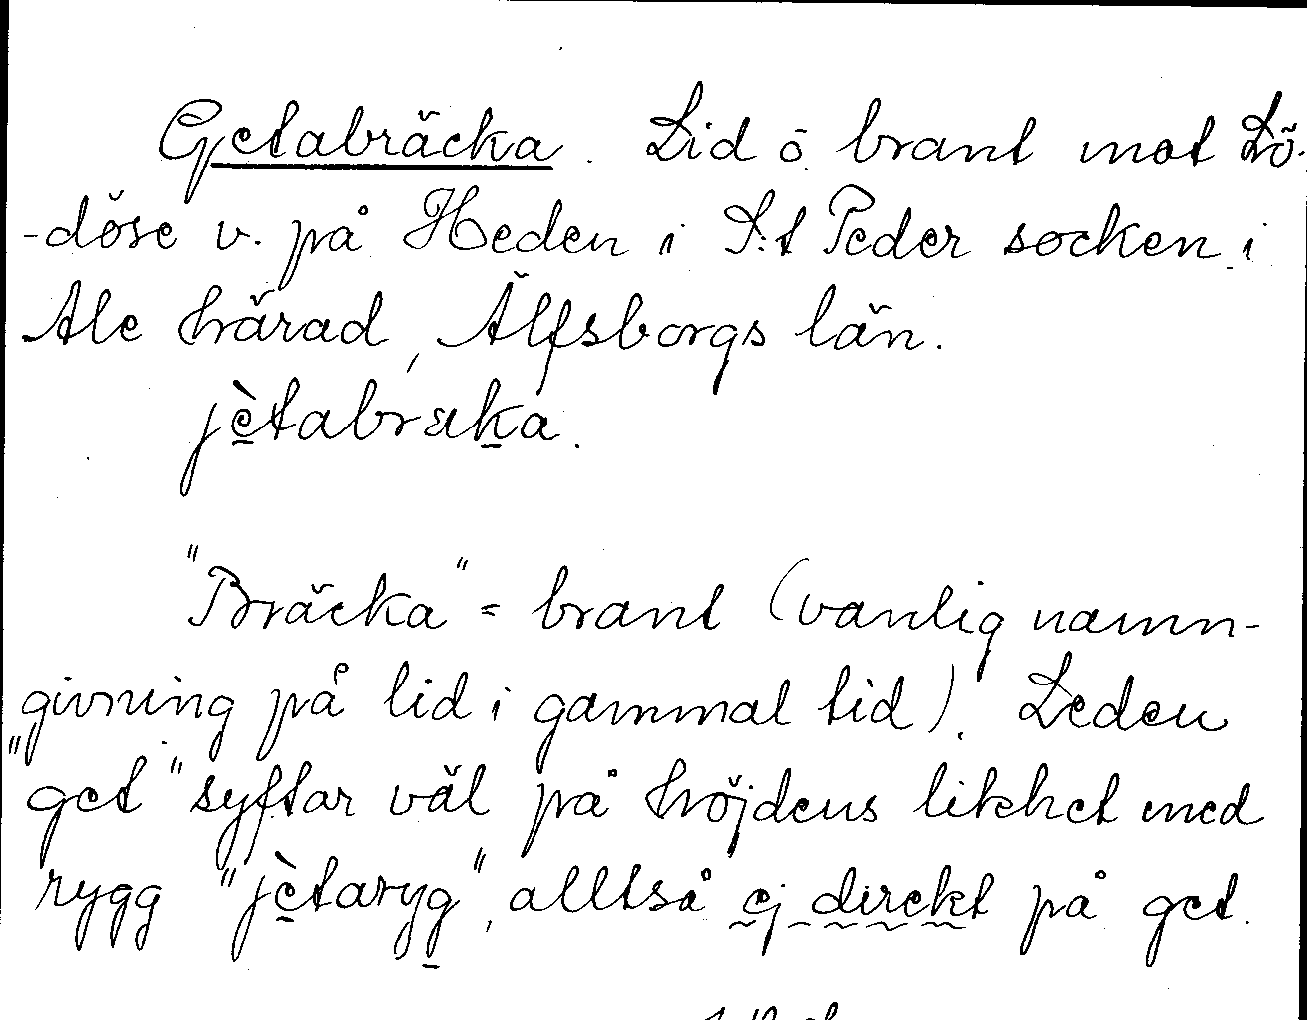 Getabräcka. Lid o. brant mot Lö-
-döse v. på Heden i S:t Peder socken i
Ale härad, Älfsborgs län.
jètabräka.
"Bräcka" = brant (vanlig namn-
givning på lid i gammal tid). Leden
"get" syftar väl på höjdens likhet med
rygg "jètaryg", alltså ej direkt på get.